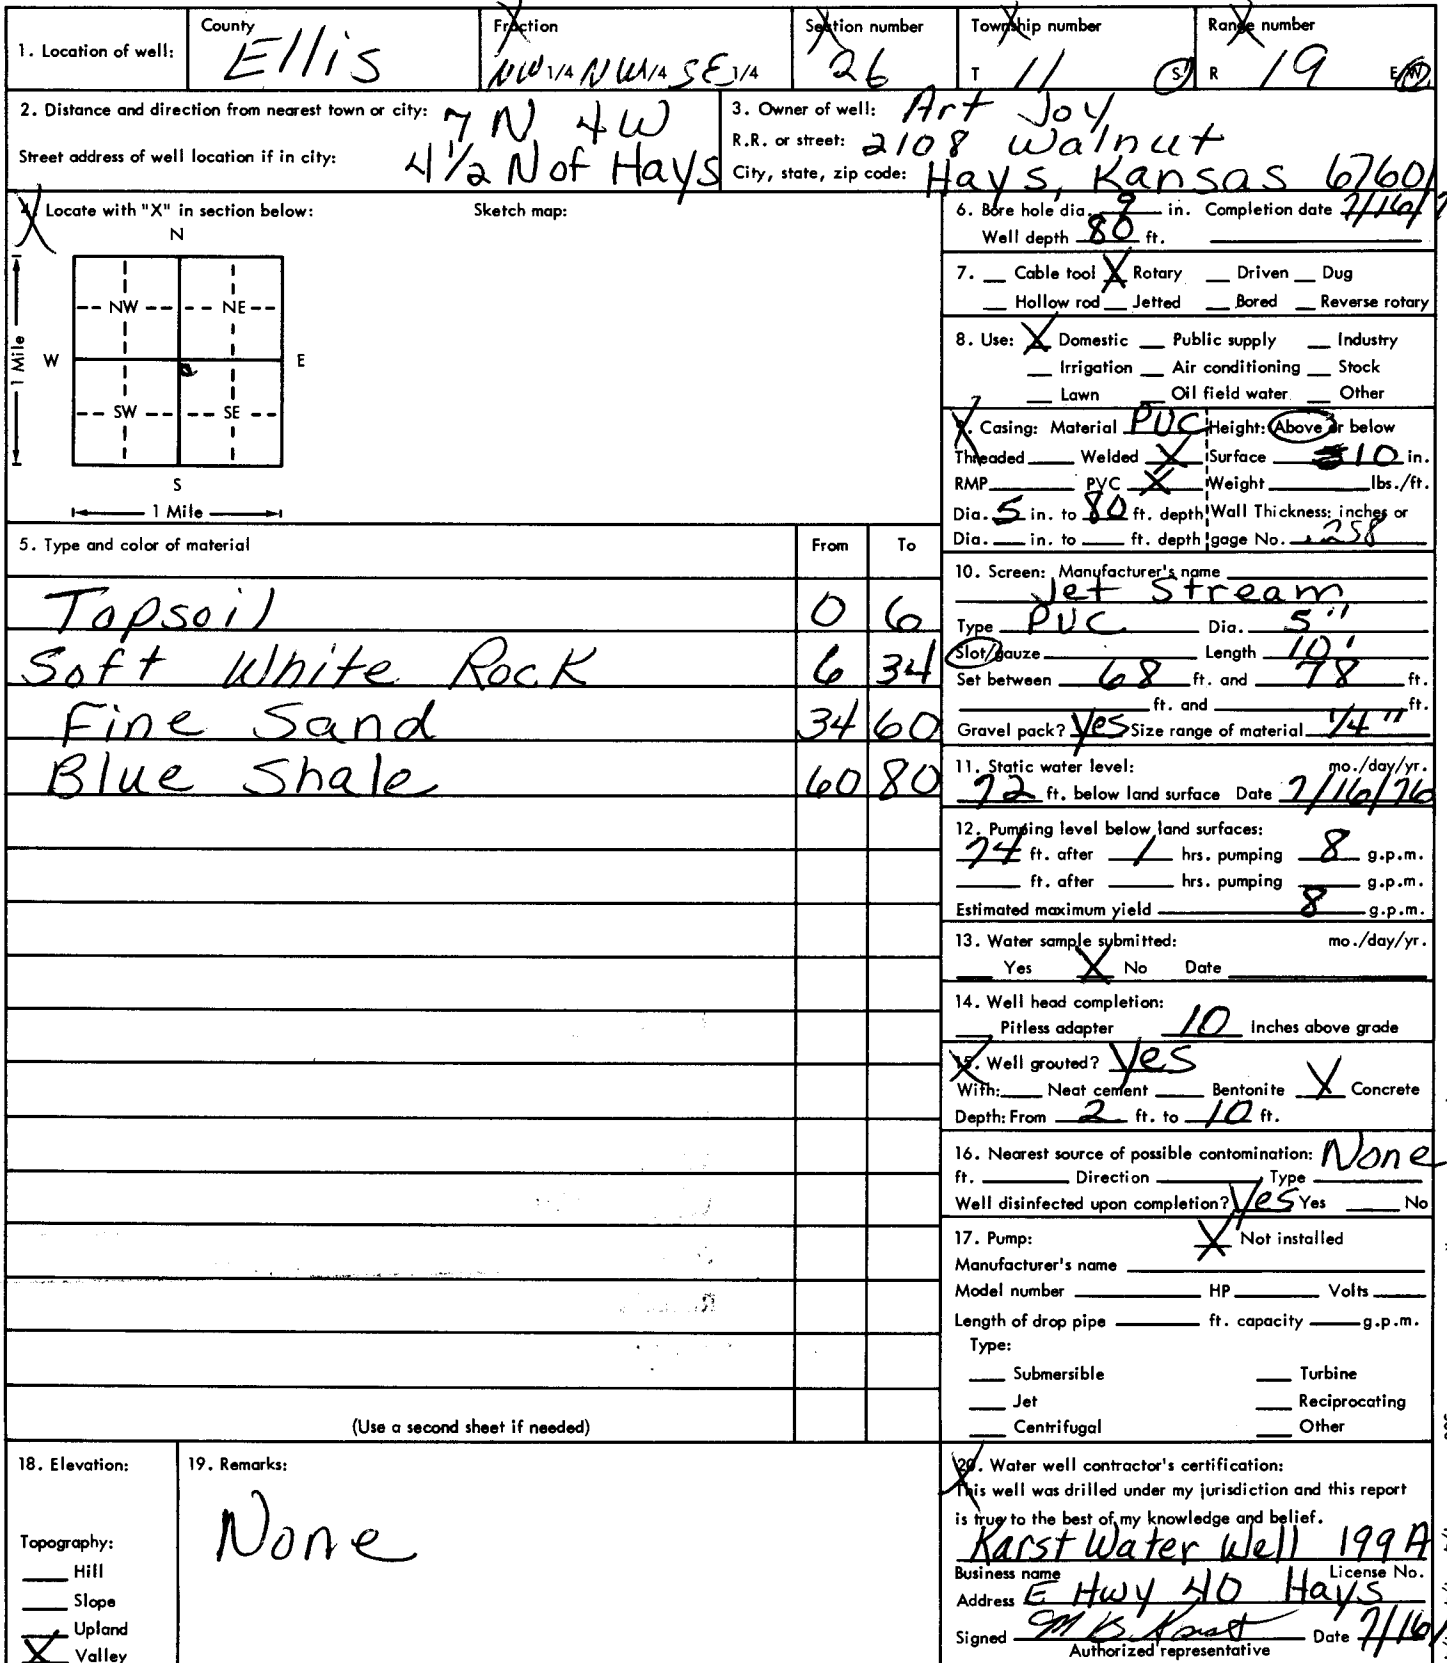 1. Location of well: County Ellis Fraction NW 1/4 NW 1/4 SE 1/4 Section number 26 Township number T 11 S Range number R 19 E W
2. Distance and direction from nearest town or city: 7 N 4 W
Street address of well location if in city: 4 1/2 N of Hays
3. Owner of well: Art Joy
R.R. or street: 2108 Walnut
City, state, zip code: Hays, Kansas 67601
4. Locate with "X" in section below: Sketch map:
N
NW NE
W E
SW SE
S
1 Mile
1 Mile
5. Type and color of material From To
Topsoil 0 6
Soft White Rock 6 34
Fine Sand 34 60
Blue Shale 60 80
(Use a second sheet if needed)
6. Bore hole dia. 9 in. Completion date 7/16/7
Well depth 80 ft.
7. Cable tool X Rotary Driven Dug
Hollow rod Jetted Bored Reverse rotary
8. Use: X Domestic Public supply Industry
Irrigation Air conditioning Stock
Lawn Oil field water Other
9. Casing: Material PVC Height: Above or below
Threaded Welded X Surface 10 in.
RMP PVC X Weight lbs./ft.
Dia. 5 in. to 80 ft. depth Wall Thickness: inches or
Dia. in. to ft. depth gage No. .258
10. Screen: Manufacturer's name
Jet Stream
Type PVC Dia. 5"
Slot/gauze Length 10'
Set between 68 ft. and 78 ft.
ft. and ft.
Gravel pack? Yes Size range of material 1/4"
11. Static water level: mo./day/yr.
72 ft. below land surface Date 7/16/76
12. Pumping level below land surfaces:
74 ft. after 1 hrs. pumping 8 g.p.m.
ft. after hrs. pumping g.p.m.
Estimated maximum yield 8 g.p.m.
13. Water sample submitted: mo./day/yr.
Yes X No Date
14. Well head completion:
Pitless adapter 10 Inches above grade
15. Well grouted? Yes
With: Neat cement Bentonite X Concrete
Depth: From 2 ft. to 10 ft.
16. Nearest source of possible contomination: None
ft. Direction Type
Well disinfected upon completion? Yes Yes No
17. Pump: X Not installed
Manufacturer's name
Model number HP Volts
Length of drop pipe ft. capacity g.p.m.
Type:
Submersible Turbine
Jet Reciprocating
Centrifugal Other
18. Elevation:
Topography:
Hill
Slope
Upland
X Valley
19. Remarks:
None
20. Water well contractor's certification:
This well was drilled under my jurisdiction and this report
is true to the best of my knowledge and belief.
Karst Water Well 199A
Business name License No.
Address E Hwy 40 Hays
Signed M B Karst Date 7/16/
Authorized representative